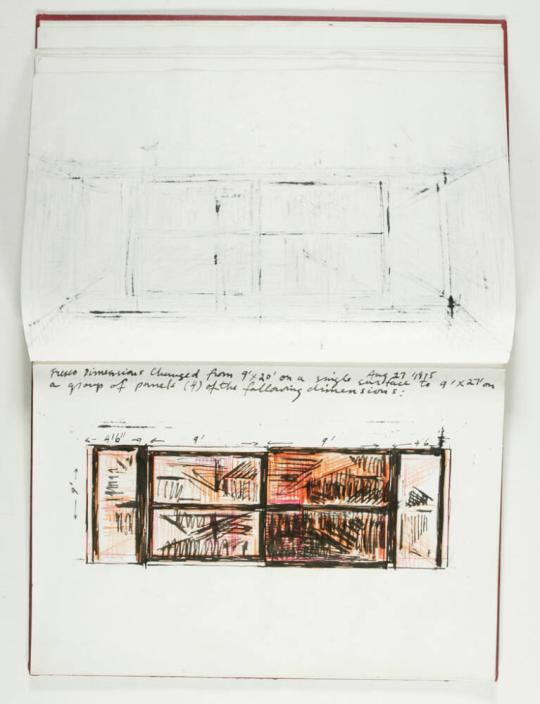 Aug 27 1975
Fresco Dimensions Changed from 9'x20' on a single surface to 9'x27' on
a group of panels (4) of the following dimensions:
4'6" 9' 9' 4'6
9'